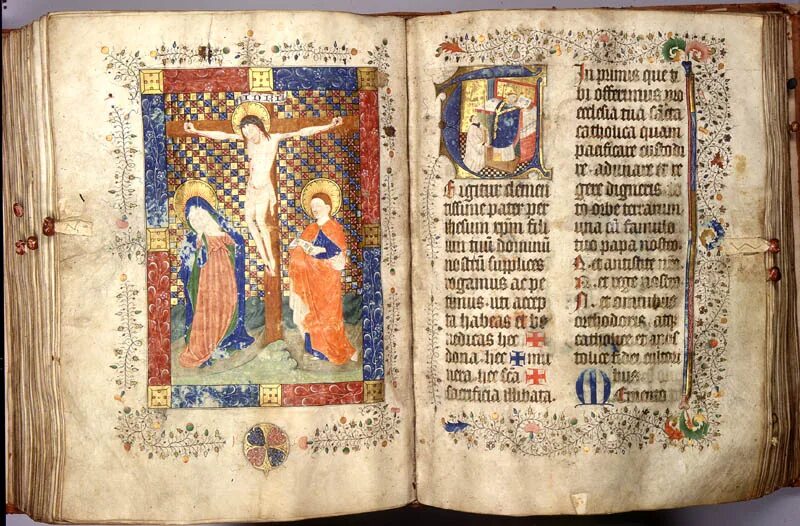 T
E igitur clemen
tissime pater per
ihesum xpm fili
um tuū dominū
nostrū supplices
rogamus ac pe
timus uti accep
ta habeas et be
nedicas hec ✠
dona hec ✠ mu
nera hec scā ✠
sacrificia illibata.
In primis que ti
bi offerimus pro
ecclesia tua sc̄ta
catholica quam
pacificare custodi
re adunare et re
gere digneris to
to orbe terrarum
una cū famulo
tuo papa nostro
N. et antistite nro
N. et rege nostro
N. et omnibus
orthodoxis, atq
catholice et apos
tolice fidei cultori
bus.
Memento